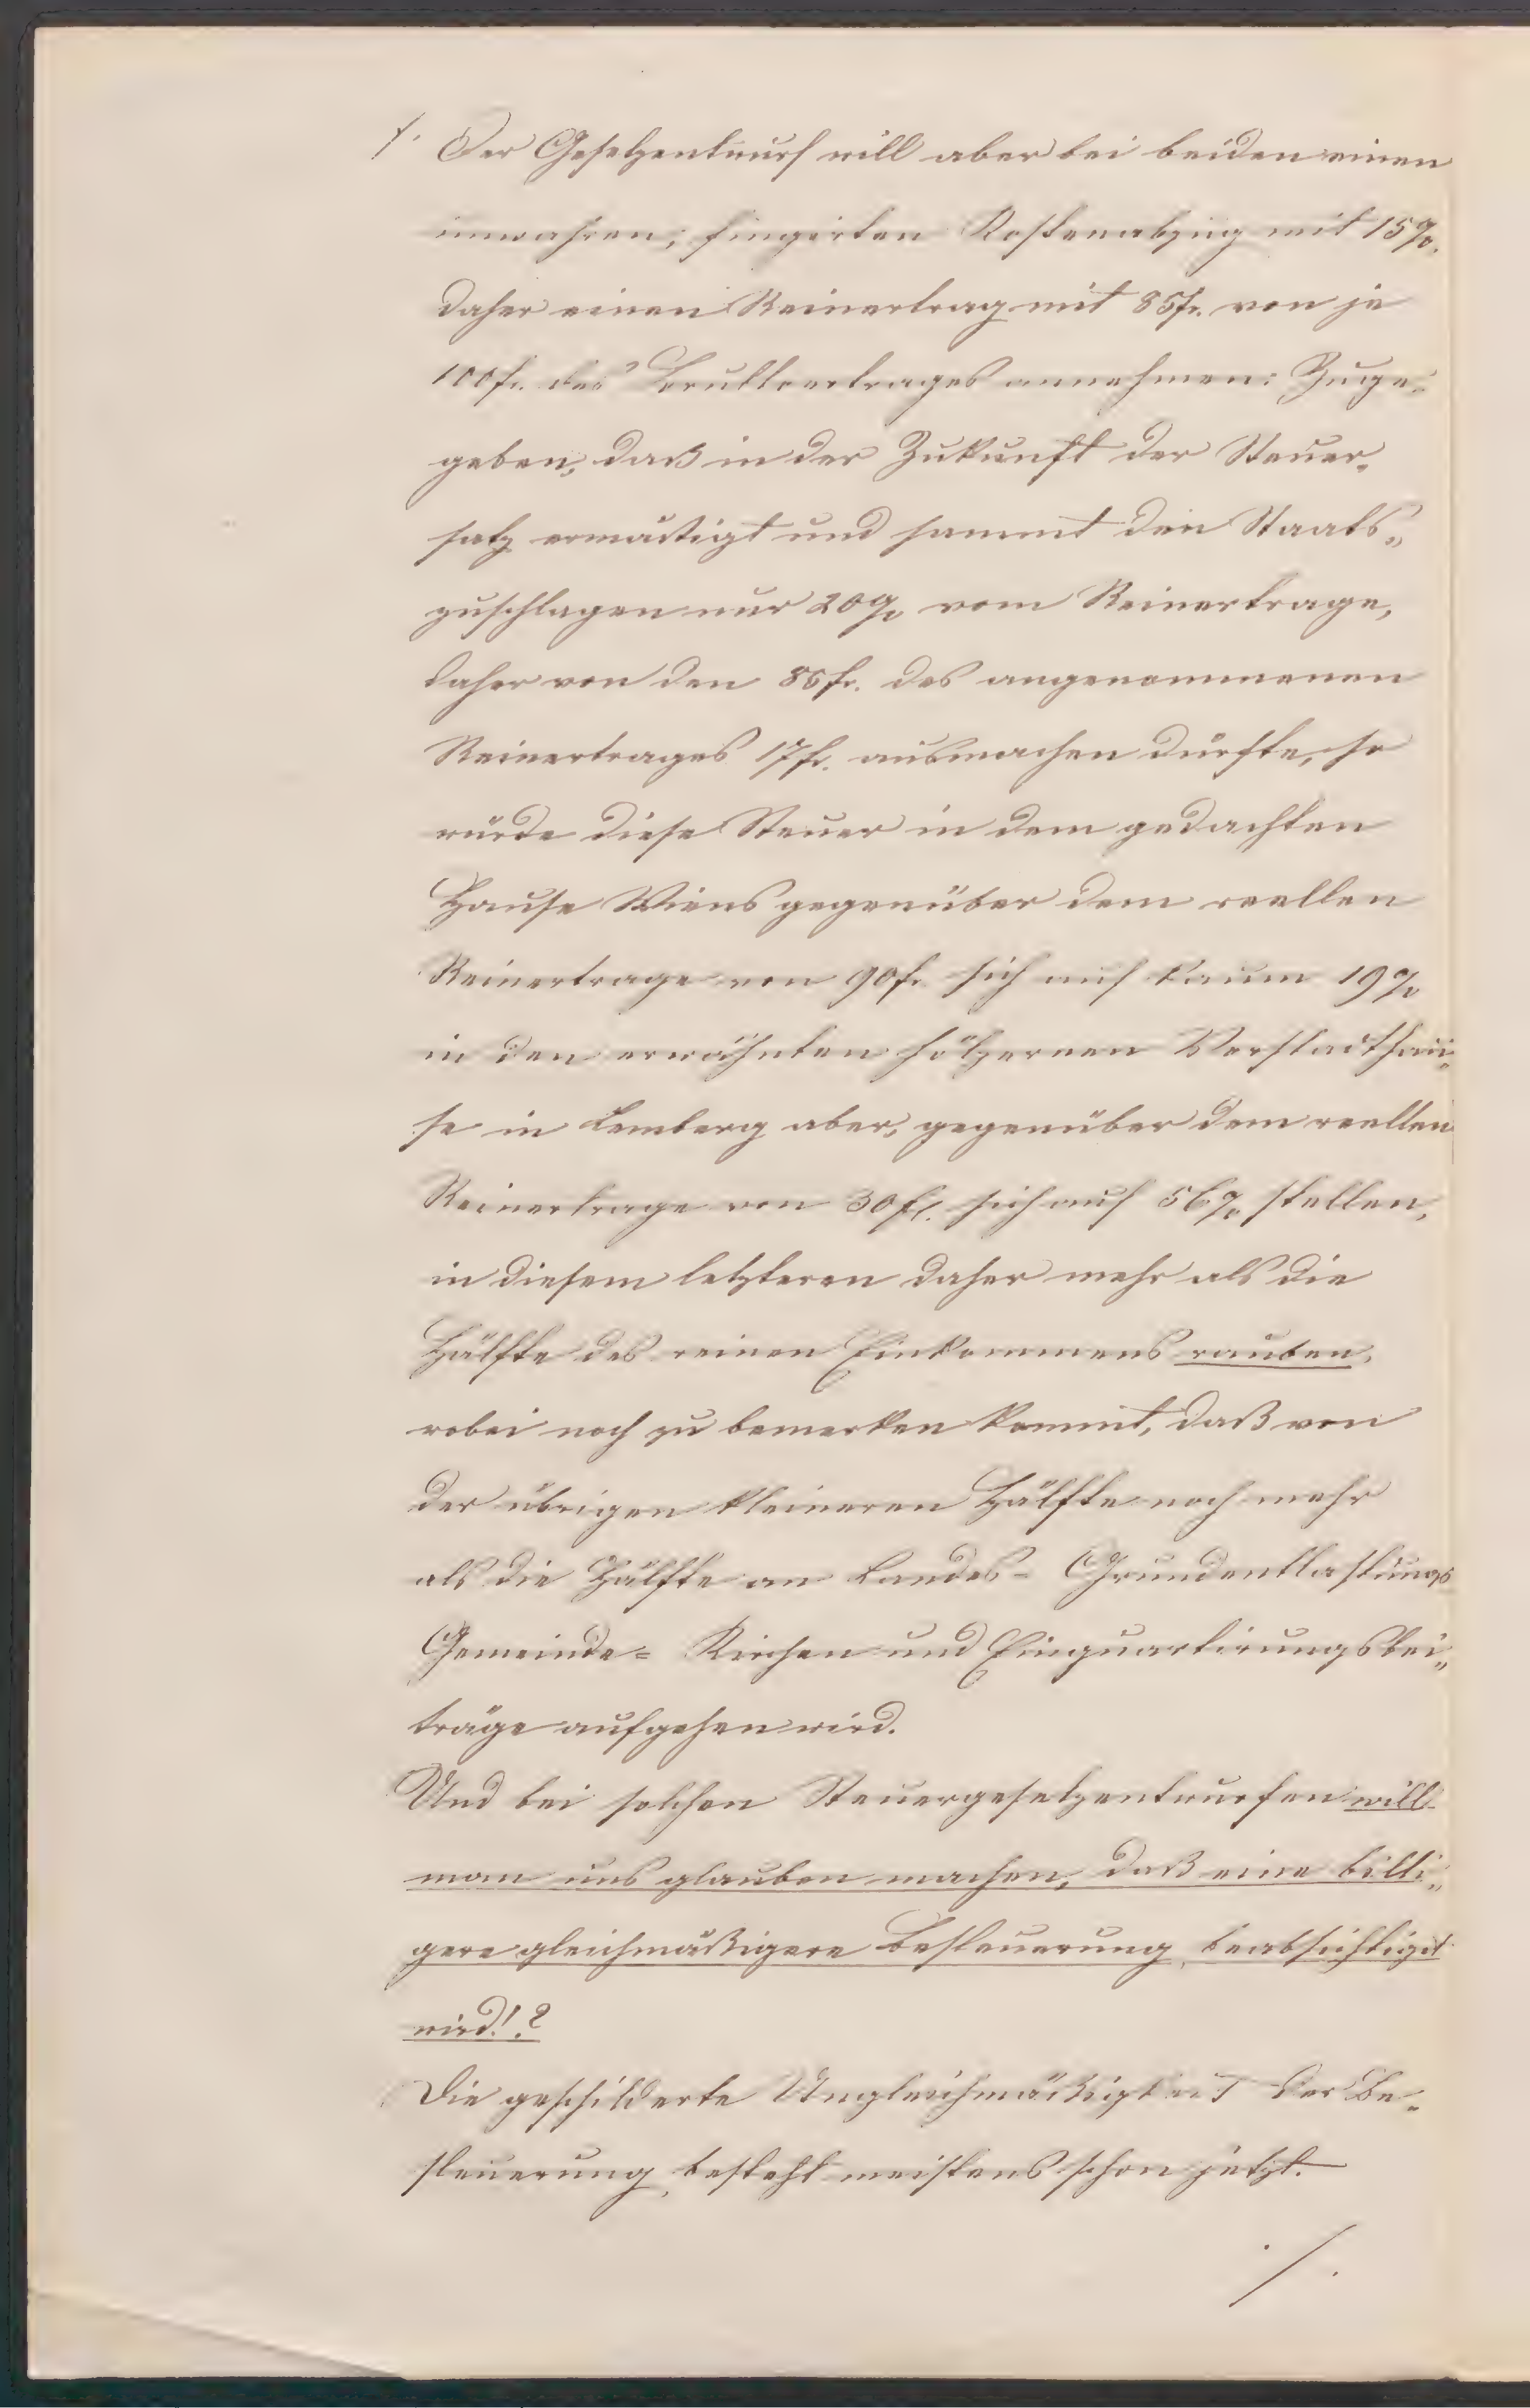 /. Der Gesetzentwurf will aber bei beiden einen
unwahren, fingirten Kostenabzug mit 15%.
daher einen Reinertrag mit 85fr. von je
100fr. des Bruttoertrages annehmen: Zuge„
geben, daß in der Zukunft der Steuer„
satz ermäßigt und sammt den Staats„
zuschlagen nur 20% vom Reinertrage,
daher von den 85fr. des angenommenen
Reinertrages 17fr. ausmachen dürfte, so
würde diese Steuer in dem gedachten
Hause Wiens gegenüber dem reellen
Reinertrage von 90fr. sich auf kaum 19%
in den erwähnten hölzernen Vorstadthau„
se in Lemberg aber, gegenüber dem reellen
Reinertrage von 30fl. sich auf 56% stellen,
in diesem letzteren daher mehr als die
Hälfte des reinen Einkommens rauben,
wobei noch zu bemerken kommt, daß von
der übrigen kleineren Hälfte noch mehr
als die Hälfte an Landes- Grundentlastungs
Gemeinde= Kirchen und Einquartirungsbei„
träge aufgehen wird.
Und bei solchen Steuergesetzentwurfen will
man uns glauben machen, daß eine billi„
gere gleichmäßigere Besteuerung beabsichtigt
wird!?
Die geschilderte Ungleichmäßigkeit der Be„
steuerung besteht meistens schon jetzt.
./.